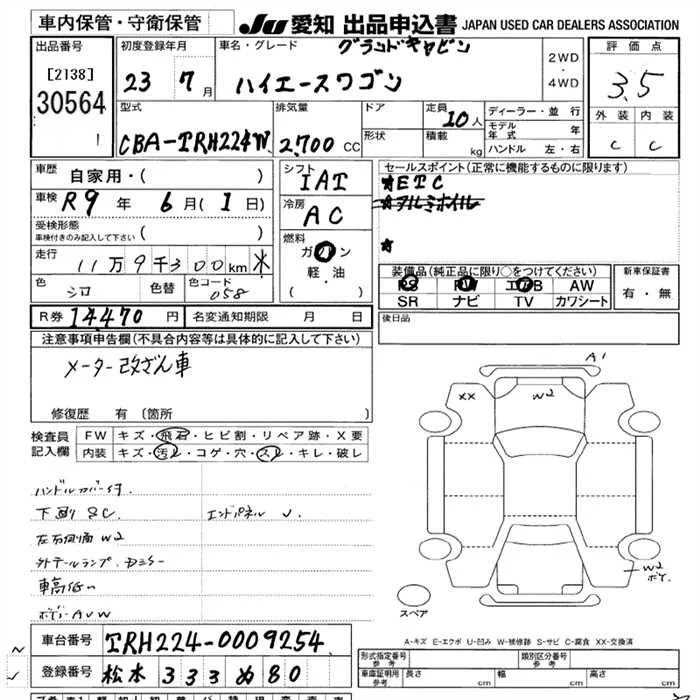 車内保管・守衛保管
JU 愛知 出品申込書 JAPAN USED CAR DEALERS ASSOCIATION
出品番号
[2138]
30564
1
初度登録年月
23 7 月
車名・グレード
グランドキャビン
ハイエースワゴン
2WD
・
4WD
評価点
3.5
外装 内装
C C
型式
CBA-TRH224W
排気量
2,700 CC
ドア
形状
定員
10人
積載
kg
ディーラー・並行
モデル年式 年
ハンドル 左・右
車歴
自家用・( )
車検
R9 年 6 月 (1 日)
受検形態
車検付きのみ記入して下さい ( )
走行
11万9千300km
色
シロ
色替
色コード
058
シフト
IAT
冷房
AC
燃料
ガソリン
軽・油
( )
セールスポイント(正常に機能するものに限ります)
★ETC
★アルミホイル
★
装備品(純正品に限り○をつけてください)
PS PW エアB AW
SR ナビ TV カワシート
新車保証書
有・無
R券 14470 円
名変通知期限 月 日
後日品
注意事項申告欄(不具合内容等は具体的に記入して下さい)
メーター改ざん車
修復歴 有 〔箇所
検査員
記入欄
FW キズ・飛石・ヒビ割・リペア跡・X要
内装 キズ・汚レ・コゲ・穴・スレ・キレ・破レ
ハンドルカバー付
下廻りSC
エンドパネル U
左右側面W2
外テールランプ
車高低い
ボデーAUW
A1
XX
W2
W2
ボデー
スペア
A-キズ E-エクボ U-凹み W-補修跡 S-サビ C-腐食 XX-交換済
車台番号 TRH224-0009254
登録番号 松本 333 ぬ 80
形式指定番号
参考
類別区分番号
参考
車庫証明用
参考
長さ cm
幅 cm
高さ cm